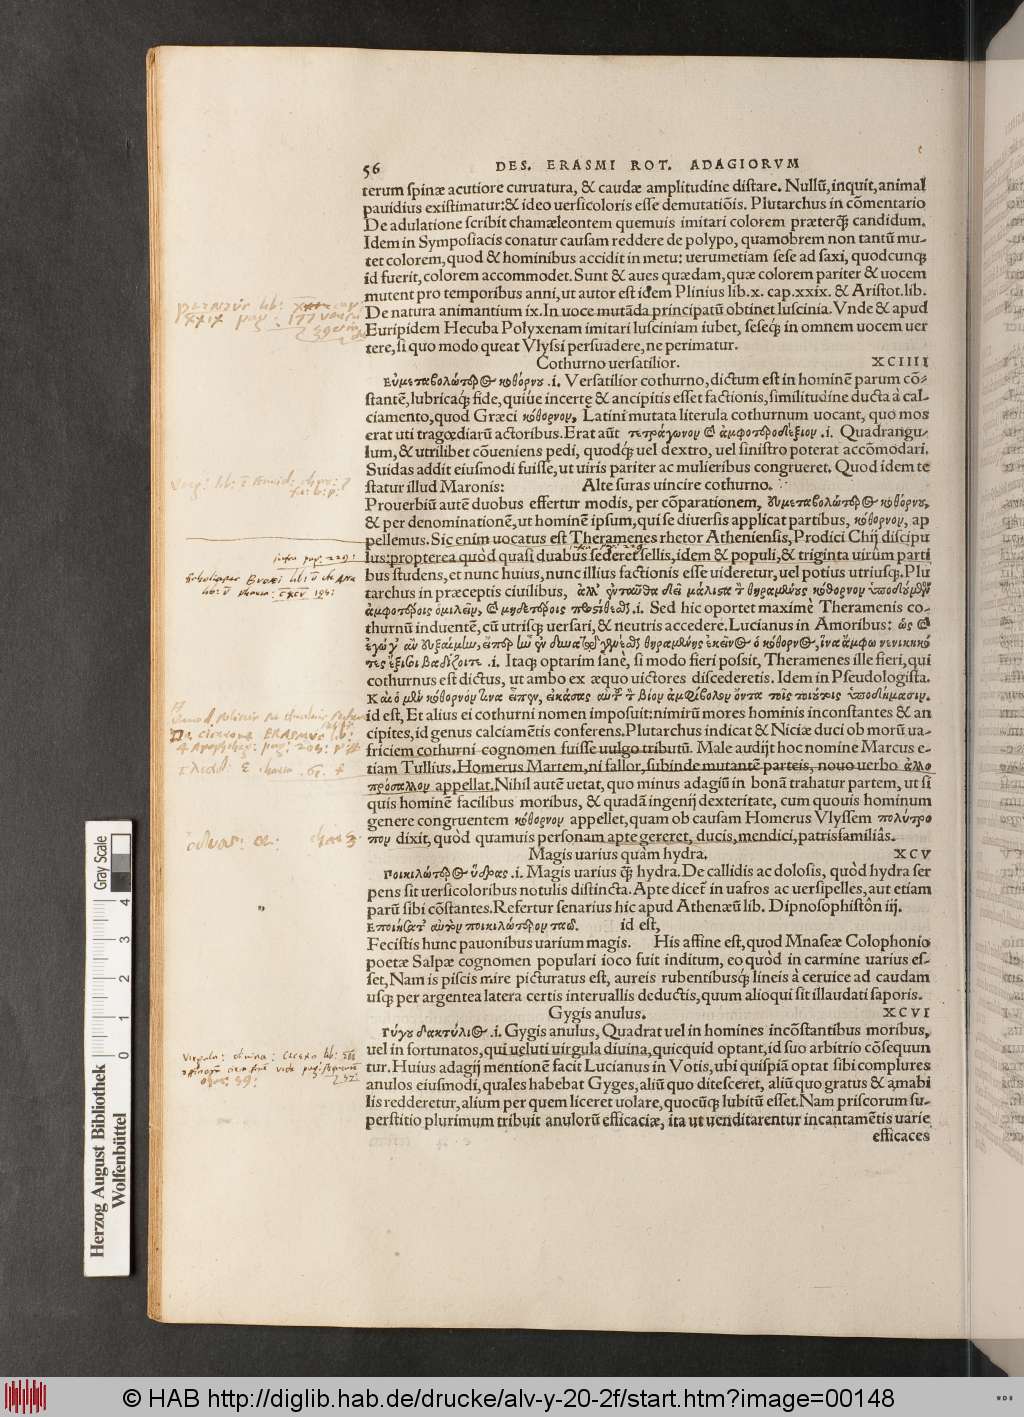 56 DES. ERASMI ROT. ADAGIORVM
terum spinæ acutiore curuatura, & caudæ amplitudine distare. Nullũ, inquit, animal
pauidius existimatur: & ideo uersicoloris esse demutatiõis. Plutarchus in cõmentario
De adulatione scribit chamæleontem quemuis imitari colorem præterq̃ candidum.
Idem in Symposiacis conatur causam reddere de polypo, quamobrem non tantũ mu-
tet colorem, quod & hominibus accidit in metu: uerumetiam sese ad saxi, quodcunq;
id fuerit, colorem accommodet. Sunt & aues quædam, quæ colorem pariter & uocem
mutent pro temporibus anni, ut autor est idem Plinius lib.x. cap.xxix. & Aristot.lib.
De natura animantium ix. In uoce mutãda principatũ obtinet luscinia. Vnde & apud
Euripidem Hecuba Polyxenam imitari lusciniam iubet, seseq; in omnem uocem uer
tere, si quo modo queat Vlyssi persuadere, ne perimatur.
Cothurno uersatilior. XCIIII
Εὐμεταβολώτερος κοθόρνου .i. Versatilior cothurno, dictum est in hominẽ parum cõ-
stantẽ, lubricaq; fide, quiue incertę & ancipitis esset factionis, similitudine ducta à cal-
ciamento, quod Græci κόθορνον, Latini mutata literula cothurnum uocant, quo mos
erat uti tragœdiarũ actoribus. Erat aũt τετράγωνον & ἀμφοτεροδέξιον .i. Quadrangu-
lum, & utrilibet cõueniens pedi, quodq; uel dextro, uel sinistro poterat accõmodari.
Suidas addit eiusmodi fuisse, ut uiris pariter ac mulieribus congrueret. Quod idem te
statur illud Maronis: Alte suras uincire cothurno.
Prouerbiũ autẽ duobus effertur modis, per cõparationem, εὐμεταβολώτερος κοθόρνου,
& per denominationẽ, ut hominẽ ipsum, qui se diuersis applicat partibus, κόθορνον, ap
pellemus. Sic enim uocatus est Theramenes rhetor Atheniensis, Prodici Chij discipu
infra pag. 229:
lus: propterea quòd quasi duabus sederet sellis, idem & populi, & triginta uirûm parti
bus studens, et nunc huius, nunc illius factionis esse uideretur, uel potius utriusq;. Plu
tarchus in præceptis ciuilibus, ἀλλ' ἐνταῦθα δεῖ μάλιστα τὸν θηραμένους κόθορνον ὑποδούμενον
ἀμφοτέροις ὁμιλεῖν, & μηδετέροις προστίθεσθαι .i. Sed hic oportet maximè Theramenis co-
thurnũ induentẽ, cũ utrisq; uersari, & neutris accedere. Lucianus in Amoribus: ὡς
tes ἔξιθι βαδίζοιτε .i. Itaq; optarim sanè, si modo fieri possit, Theramenes ille fieri, qui
cothurnus est dictus, ut ambo ex æquo uictores discederetis. Idem in Pseudologista.
Καὶ ὁ μὲν κόθορνόν τινα εἶπεν, εἰκάσας αὐτοῦ τὸν βίον ἀμφίβολον ὄντα τοῖς τοιούτοις ὑποδήμασιν.
id est, Et alius ei cothurni nomen imposuit: nimirũ mores hominis inconstantes & an
cipites, id genus calciamẽtis conferens. Plutarchus indicat & Niciæ duci ob morũ ua-
friciem cothurni cognomen fuisse uulgo tributũ. Male audijt hoc nomine Marcus e-
tiam Tullius. Homerus Martem, ni fallor, subinde mutantẽ parteis, nouo uerbo ἀλλο
πρόσαλλον appellat. Nihil autẽ uetat, quo minus adagiũ in bonã trahatur partem, ut si
quis hominẽ facilibus moribus, & quadã ingenij dexteritate, cum quouis hominum
genere congruentem κόθορνον appellet, quam ob causam Homerus Vlyssem πολύτρο
πον dixit, quòd quamuis personam apte gereret, ducis, mendici, patrisfamiliâs.
Magis uarius quàm hydra. XCV
Ποικιλώτερος ὕδρας .i. Magis uarius q̃ hydra. De callidis ac dolosis, quòd hydra ser
pens sit uersicoloribus notulis distincta. Apte dicet̃ in uafros ac uersipelles, aut etiam
parũ sibi cõstantes. Refertur senarius hic apud Athenæũ lib. Dipnosophistôn iij.
Εποίησατ' αὐτὸν ποικιλώτερον ταῶ. id est,
Fecistis hunc pauonibus uarium magis. His affine est, quod Mnaseæ Colophonio
poetæ Salpæ cognomen populari ioco fuit inditum, eo quòd in carmine uarius es-
set, Nam is piscis mire picturatus est, aureis rubentibusq; lineis à ceruice ad caudam
usq; per argentea latera certis interuallis deductis, quum alioqui sit illaudati saporis.
Gygis anulus. XCVI
Γύγου δακτύλιος .i. Gygis anulus, Quadrat uel in homines incõstantibus moribus,
uel in fortunatos, qui ueluti uirgula diuina, quicquid optant, id suo arbitrio cõsequun
tur. Huius adagij mentionẽ facit Lucianus in Votis, ubi quispiã optat sibi complures
anulos eiusmodi, quales habebat Gyges, aliũ quo ditesceret, aliũ quo gratus & amabi
lis redderetur, alium per quem liceret uolare, quocũq; lubitũ esset. Nam priscorum su-
perstitio plurimum tribuit anulorũ efficaciæ, ita ut uenditarentur incantamẽtis uarie
efficaces
Gray Scale
0 1 2 3 4
Herzog August Bibliothek
Wolfenbüttel
© HAB http://diglib.hab.de/drucke/alv-y-20-2f/start.htm?image=00148